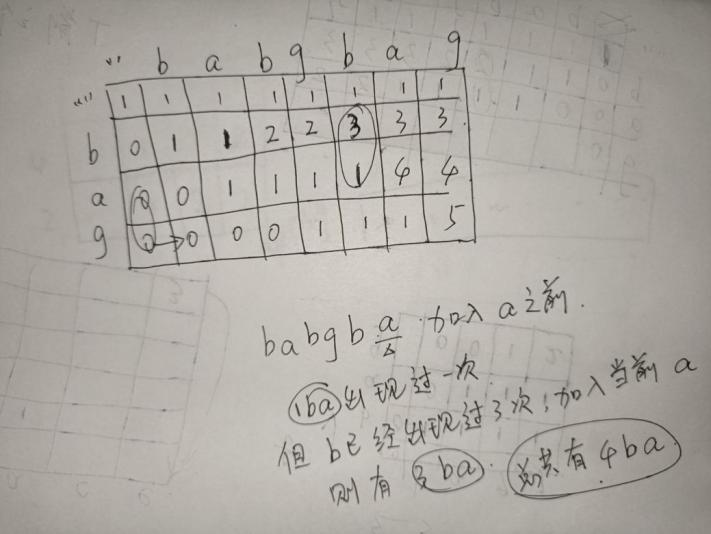 "" b a b g b a g
"" 1 1 1 1 1 1 1 1
b 0 1 1 2 2 3 3 3
a 0 0 1 1 1 1 4 4
g 0 0 0 0 1 1 1 5
babgba 加入a之前.
ba出现过一次
但b已经出现过3次,加入当前a
则有3ba. 总共有4ba.